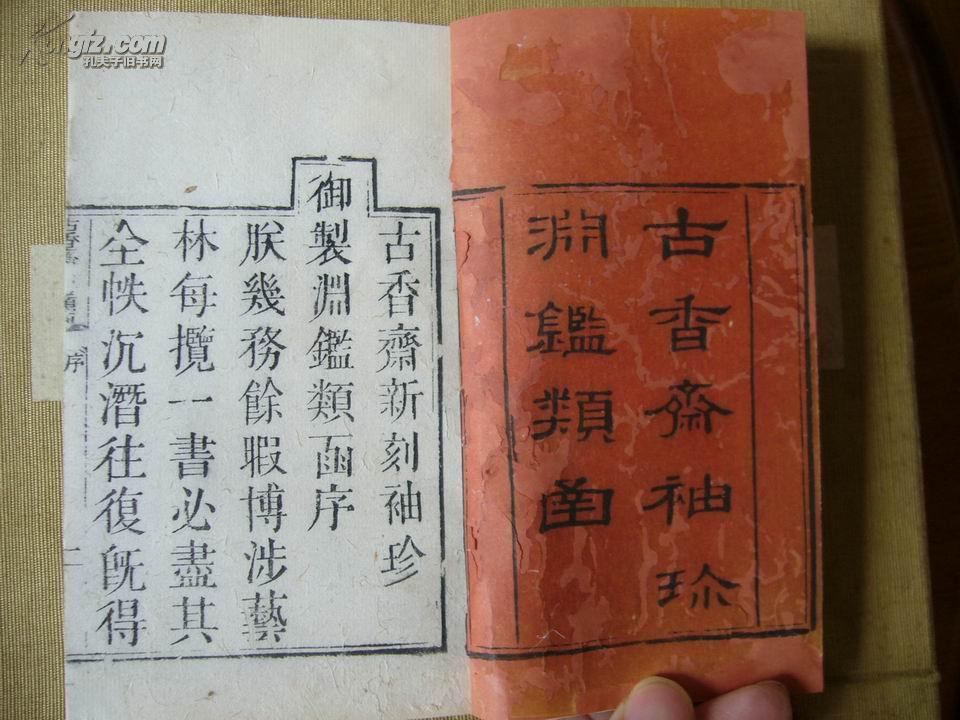 古香齋袖珎
淵鑑類凾
古香齋新刻袖珍
御製淵鑑類凾序
朕幾務餘暇博涉藝
林每攬一書必盡其
全帙沉潛往復旣得
序
kongfz.com
孔夫子旧书网